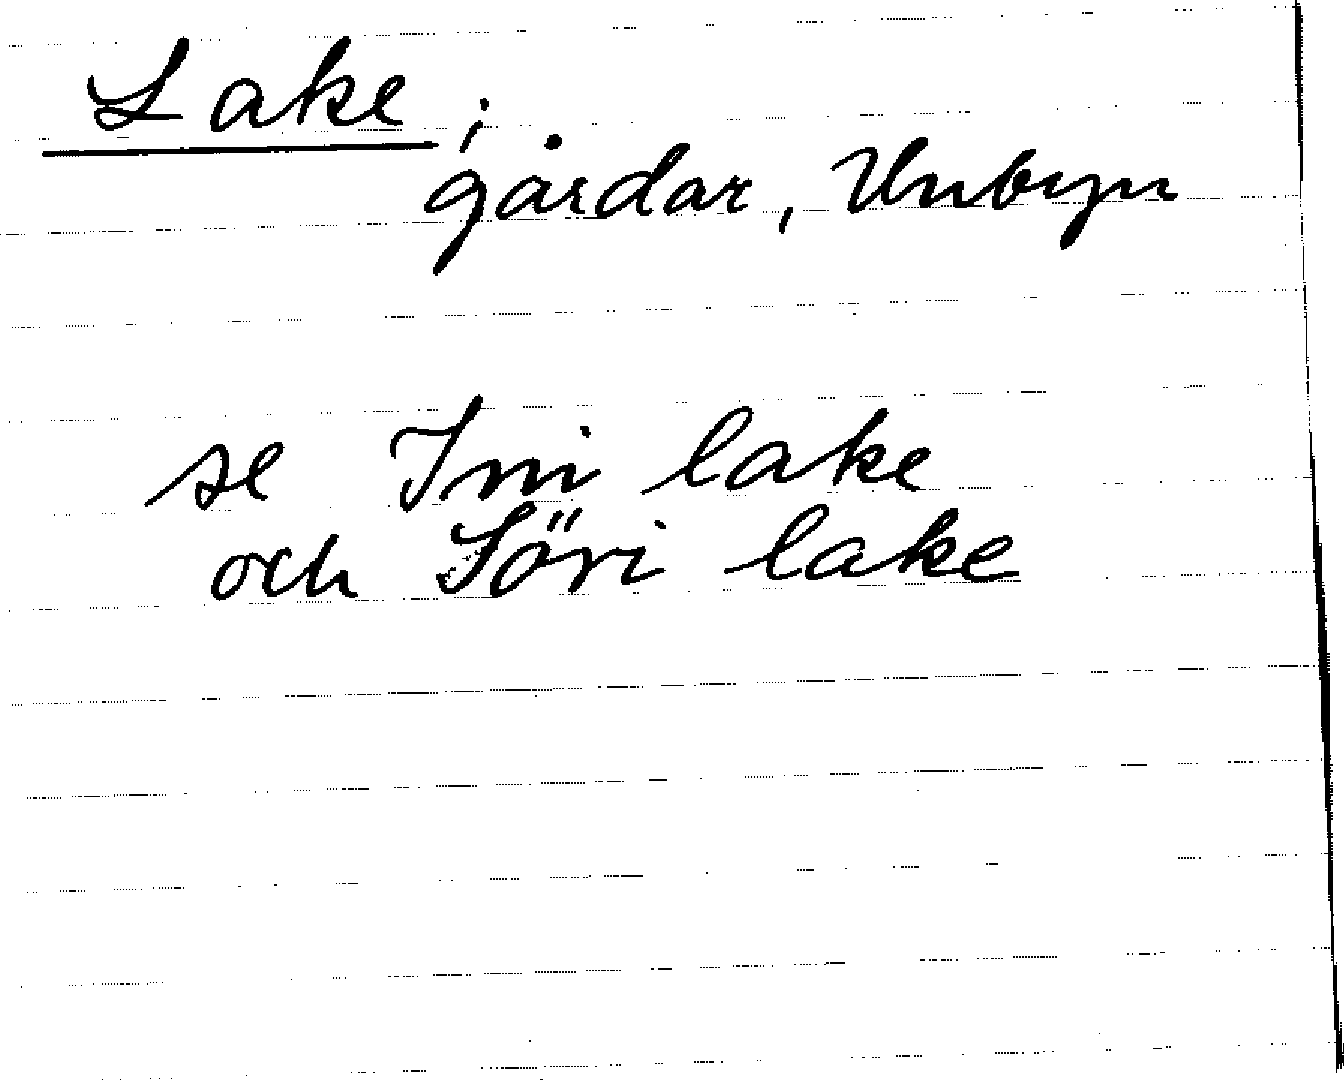 Lake;
gårdar, Unbyn
se Ini lake
och Söri lake